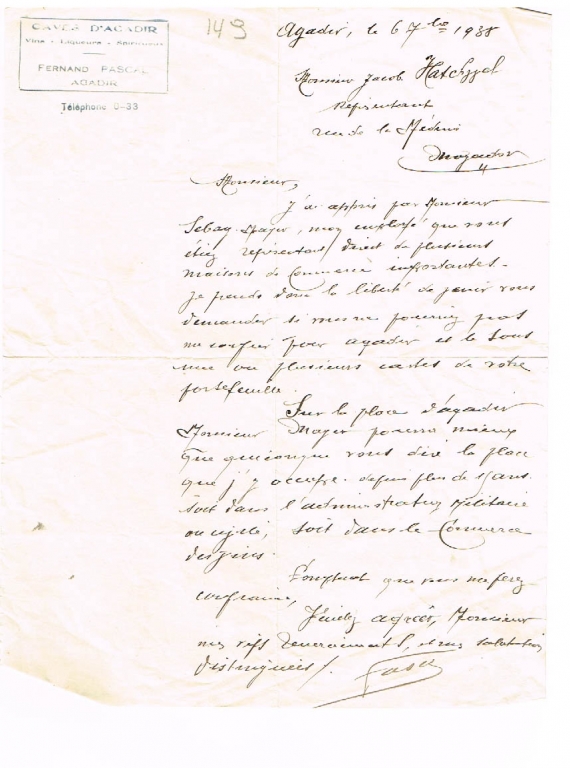 CAVES D'AGADIR
Vins - Liqueurs - Spiritueux
FERNAND PASCAL
AGADIR
Téléphone 0-33
149
Agadir, le 6 7bre 1938
Monsieur Jacob
Représentant
rue de la
Mogador
Monsieur,
J'ai appris par Monsieur
Sebag Major, mon employé que vous
étiez représentant direct de plusieurs
maisons de Commerce importantes -
Je prends donc la liberté de venir vous
demander si vous ne pourriez pas
me confier pour Agadir et le Sous
une ou plusieurs cartes de votre
portefeuille.
Sur la place d'Agadir
Monsieur Major pourra mieux
que quiconque vous dire la place
que j'y occupe depuis plus de ans
soit dans l'administration Militaire
ou civile, soit dans le Commerce
des vins.
que vous me ferez
confiance,
Veuillez agréer, Monsieur
mes vifs remerciements, et mes salutations
distinguées /.